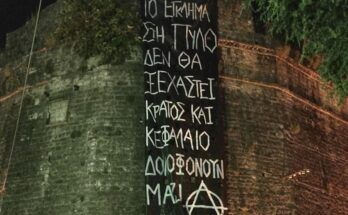 ΤΟ ΕΓΚΛΗΜΑ
ΣΤΗ ΠΥΛΟ
ΔΕΝ ΘΑ
ΞΕΧΑΣΤΕΙ
ΚΡΑΤΟΣ ΚΑΙ
ΚΕΦΑΛΑΙΟ
ΔΟΛΟΦΟΝΟΥΝ
ΜΑΖΙ